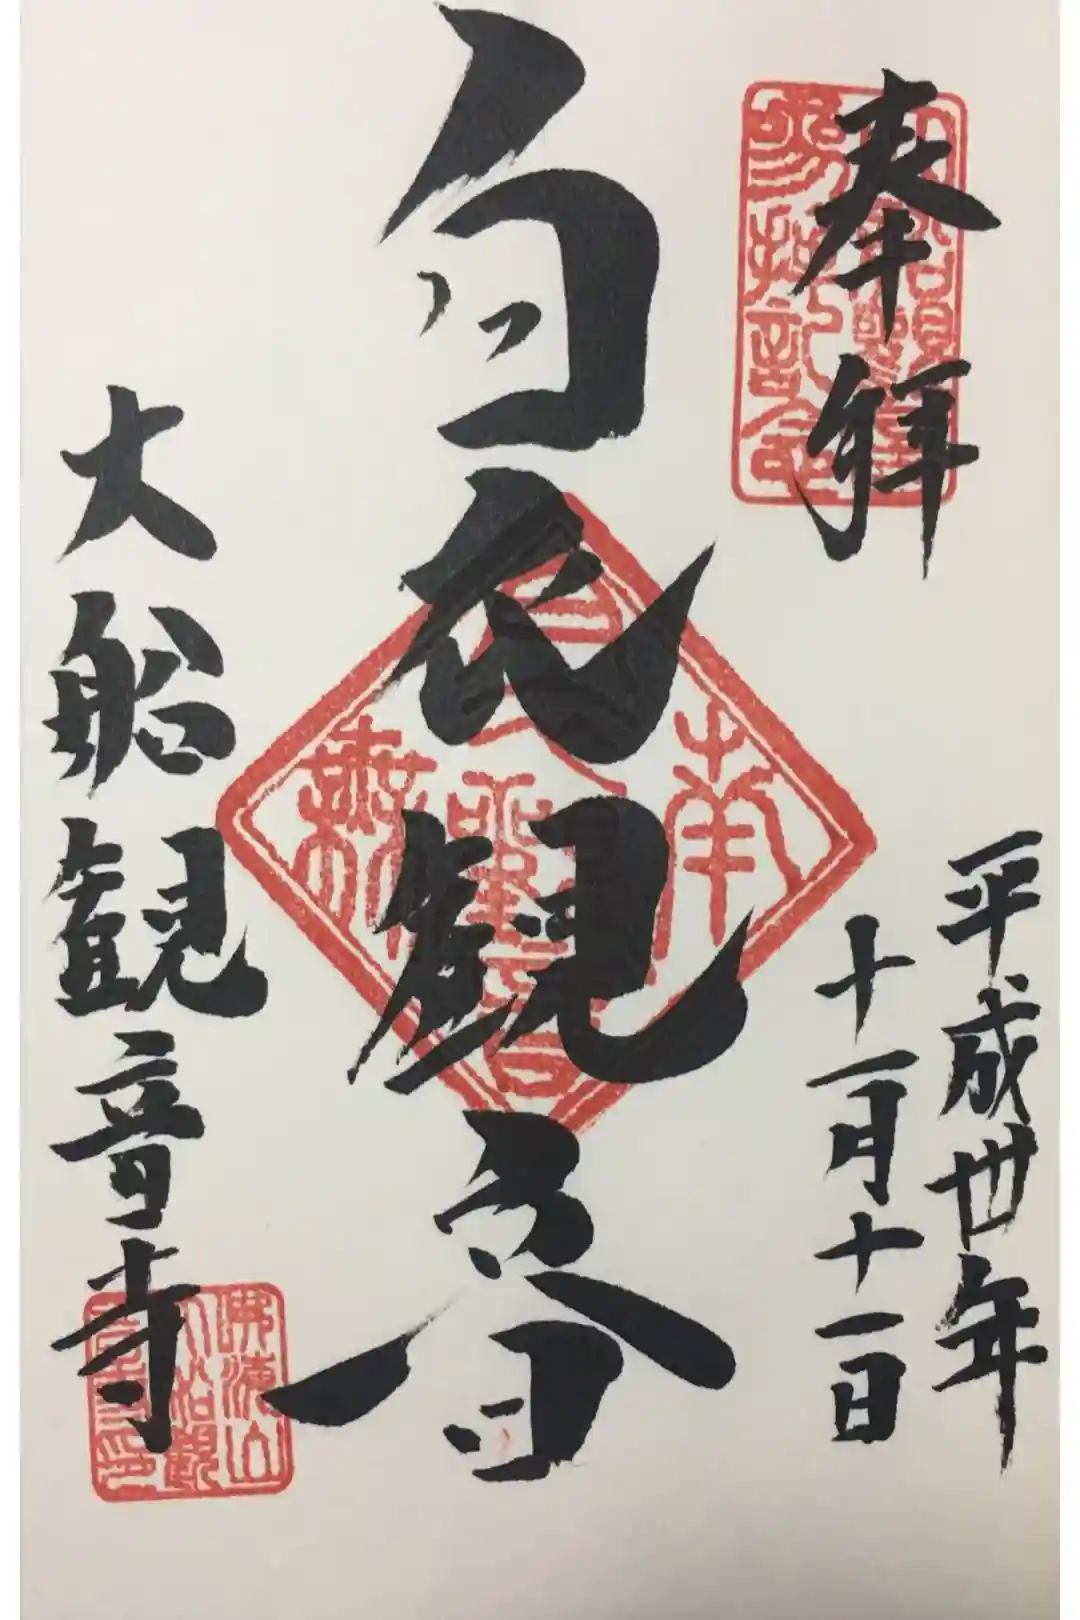 奉拝
平成卅年
十一月十一日
白衣観音
南無
大船観音寺